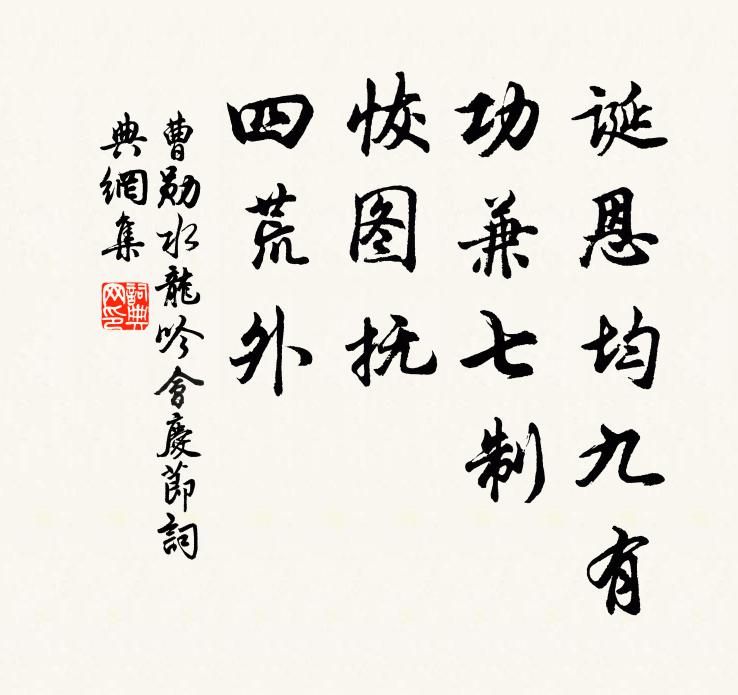 诞恩均九有
功兼七制
恢图抚
四荒外
曹勋水龍吟會慶節詞
典網集
詞典网印